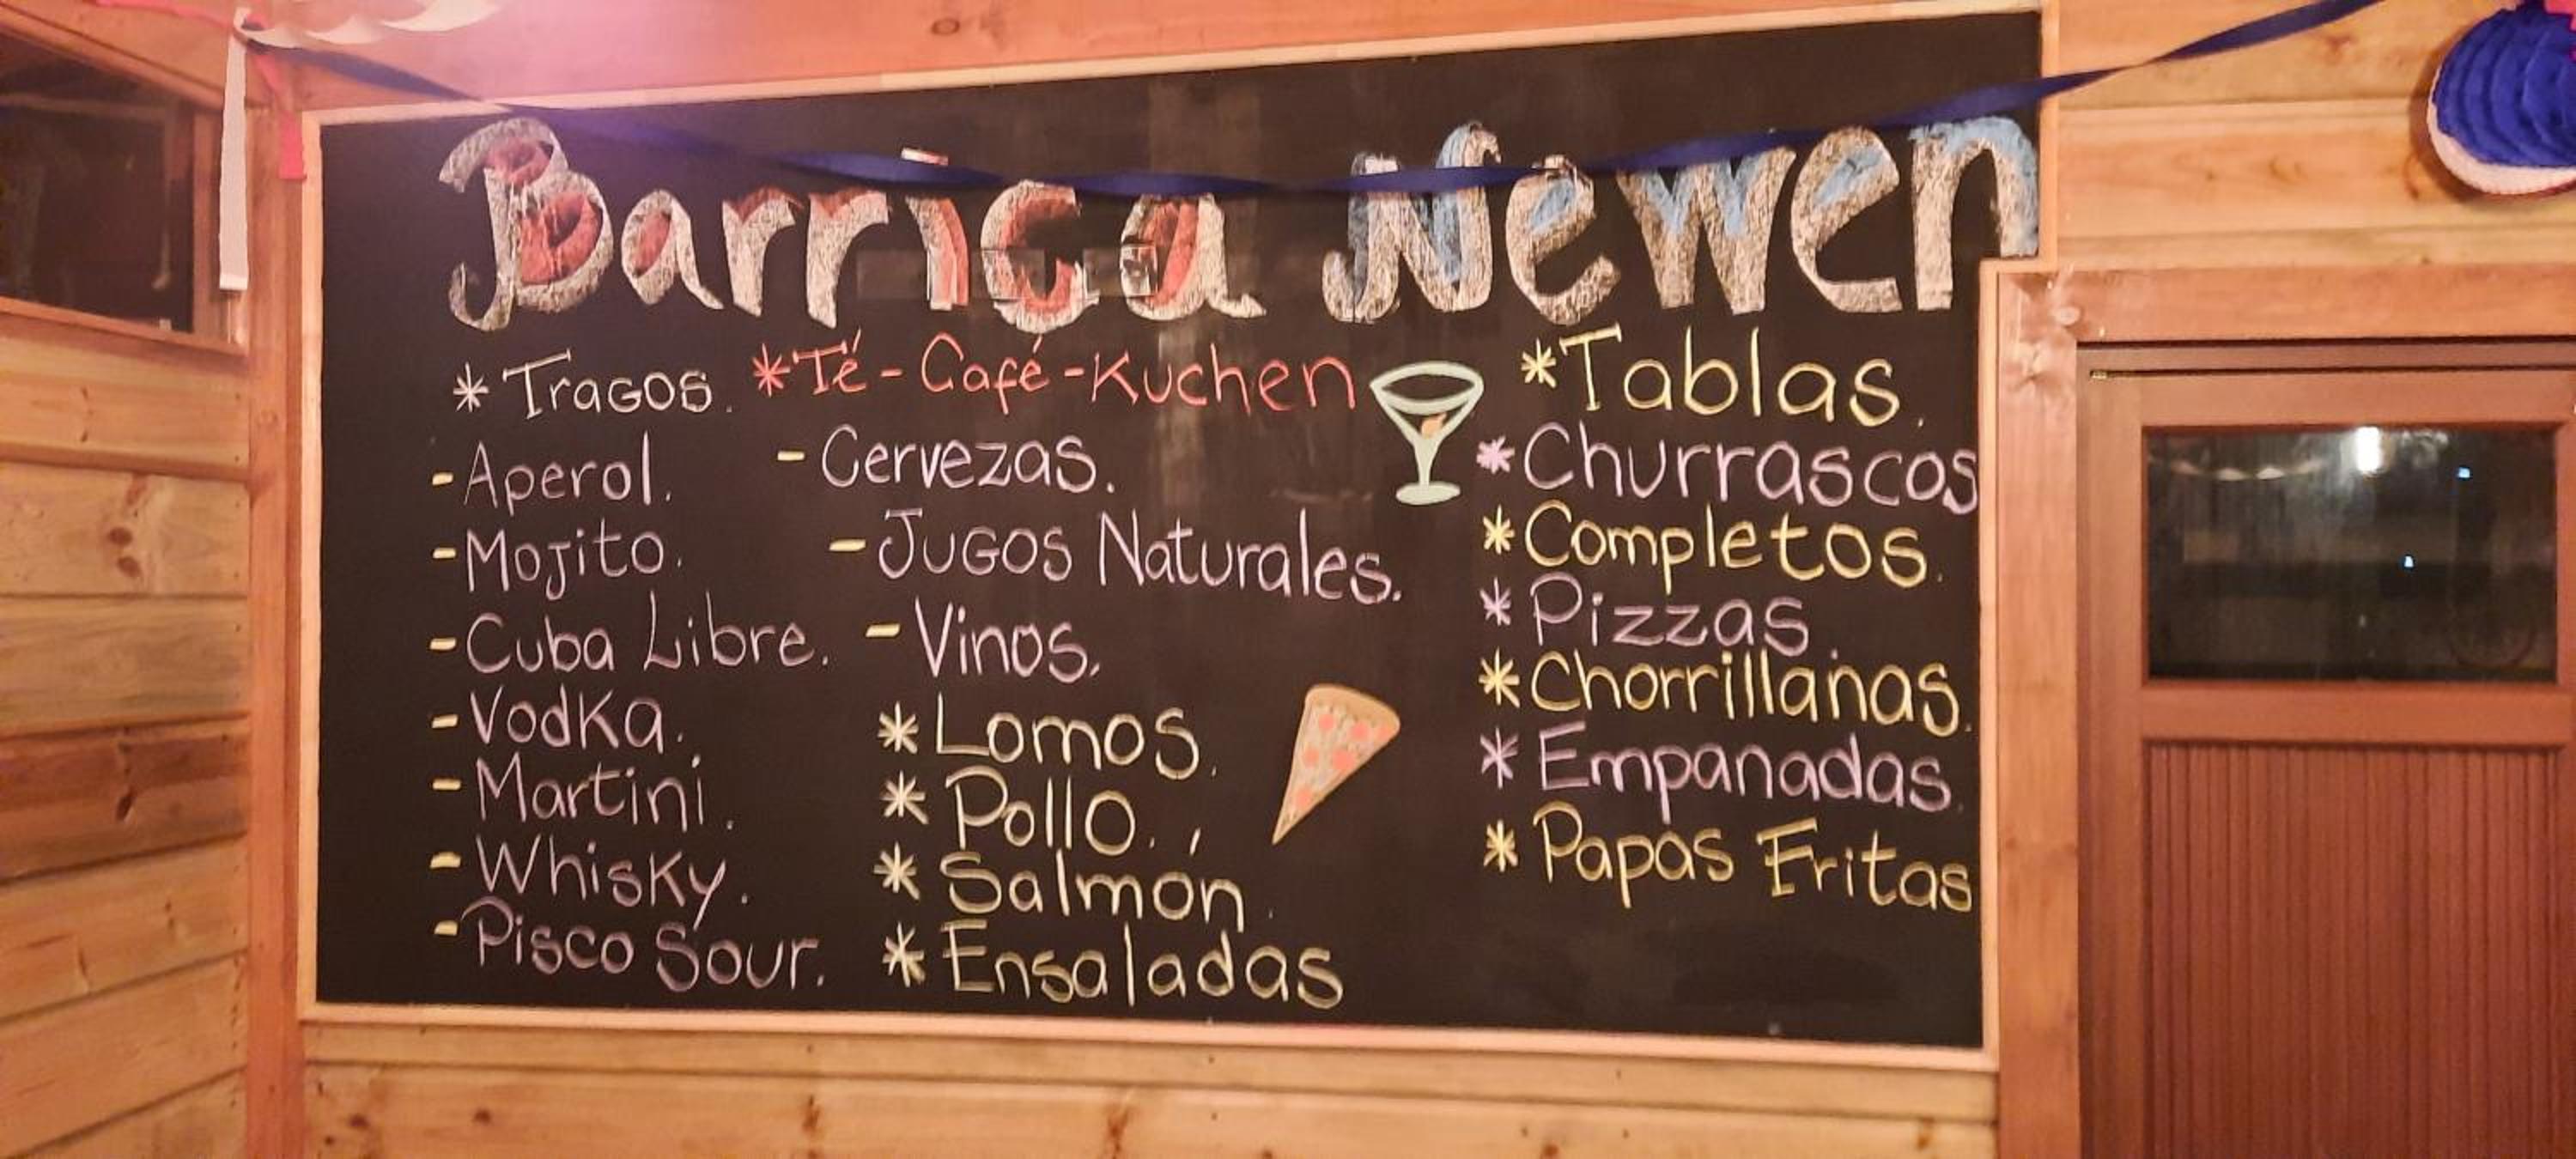 Barrica Newen
* Tragos.
- Aperol.
- Mojito.
- Cuba Libre.
- Vodka.
- Martini.
- Whisky.
- Pisco Sour.
* Té - Café - Kuchen
- Cervezas.
- Jugos Naturales.
- Vinos.
* Lomos.
* Pollo.
* Salmón.
* Ensaladas
* Tablas.
* Churrascos
* Completos.
* Pizzas.
* Chorrillanas.
* Empanadas.
* Papas Fritas